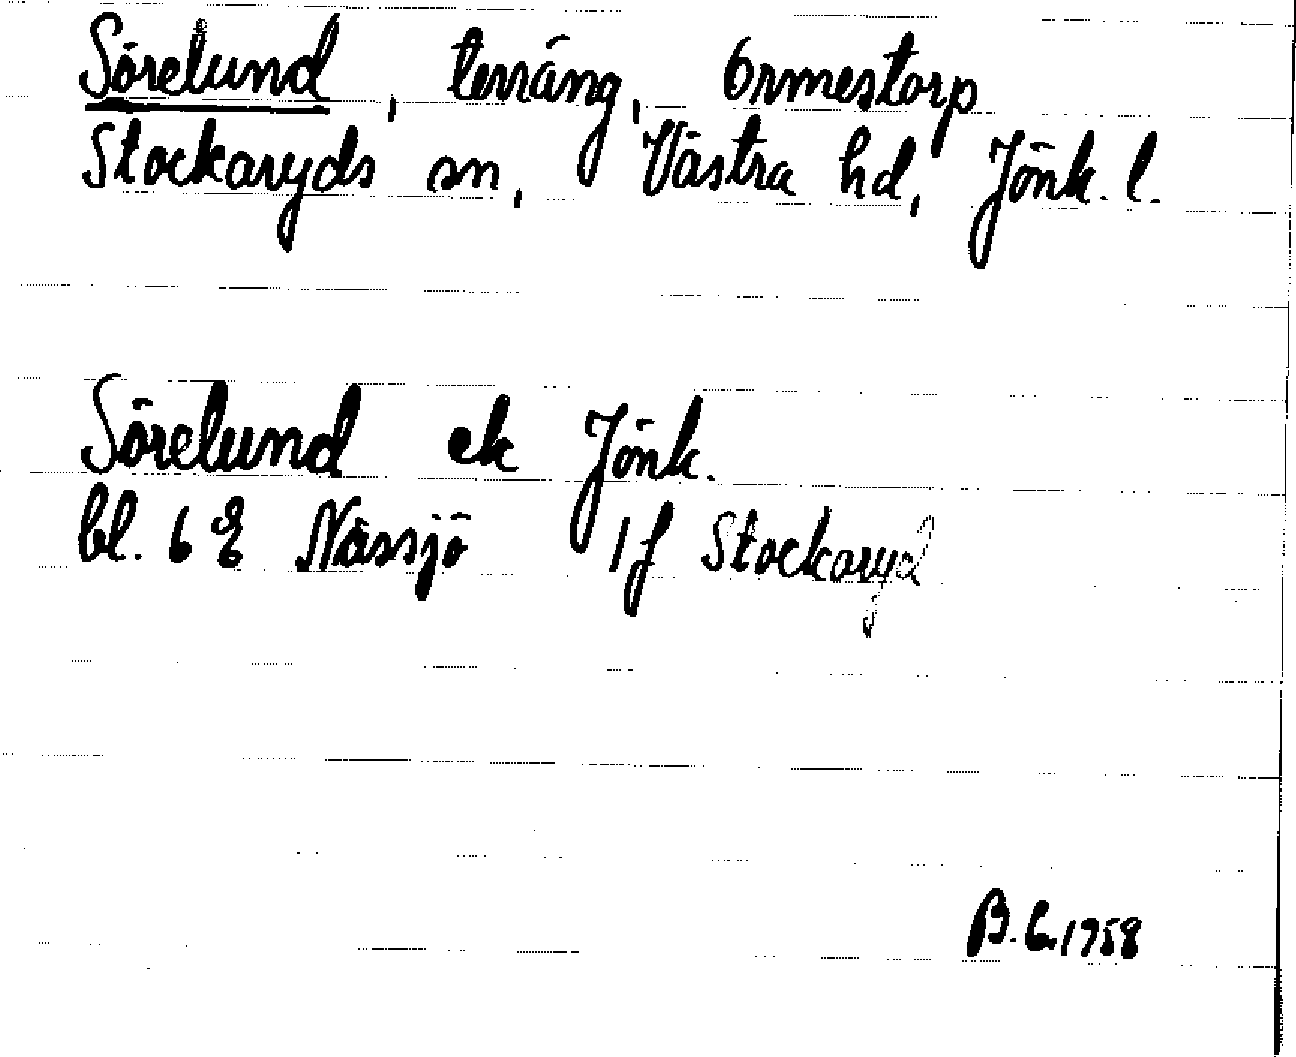 Sörelund, terräng, Ormestorp
Stockaryds sn, Västra hd, Jönk. l.
Sörelund ek Jönk.
bl. 6 E Nässjö 1f Stockaryd
B. E. 1958